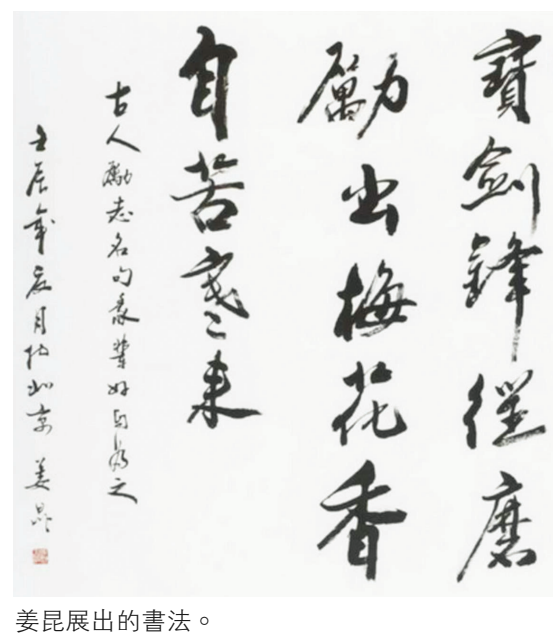 寶劍鋒從磨
勵出梅花香
自苦寒來
古人勵志名句我輩好自為之
壬辰年夏月於北京 姜昆
姜昆展出的書法。